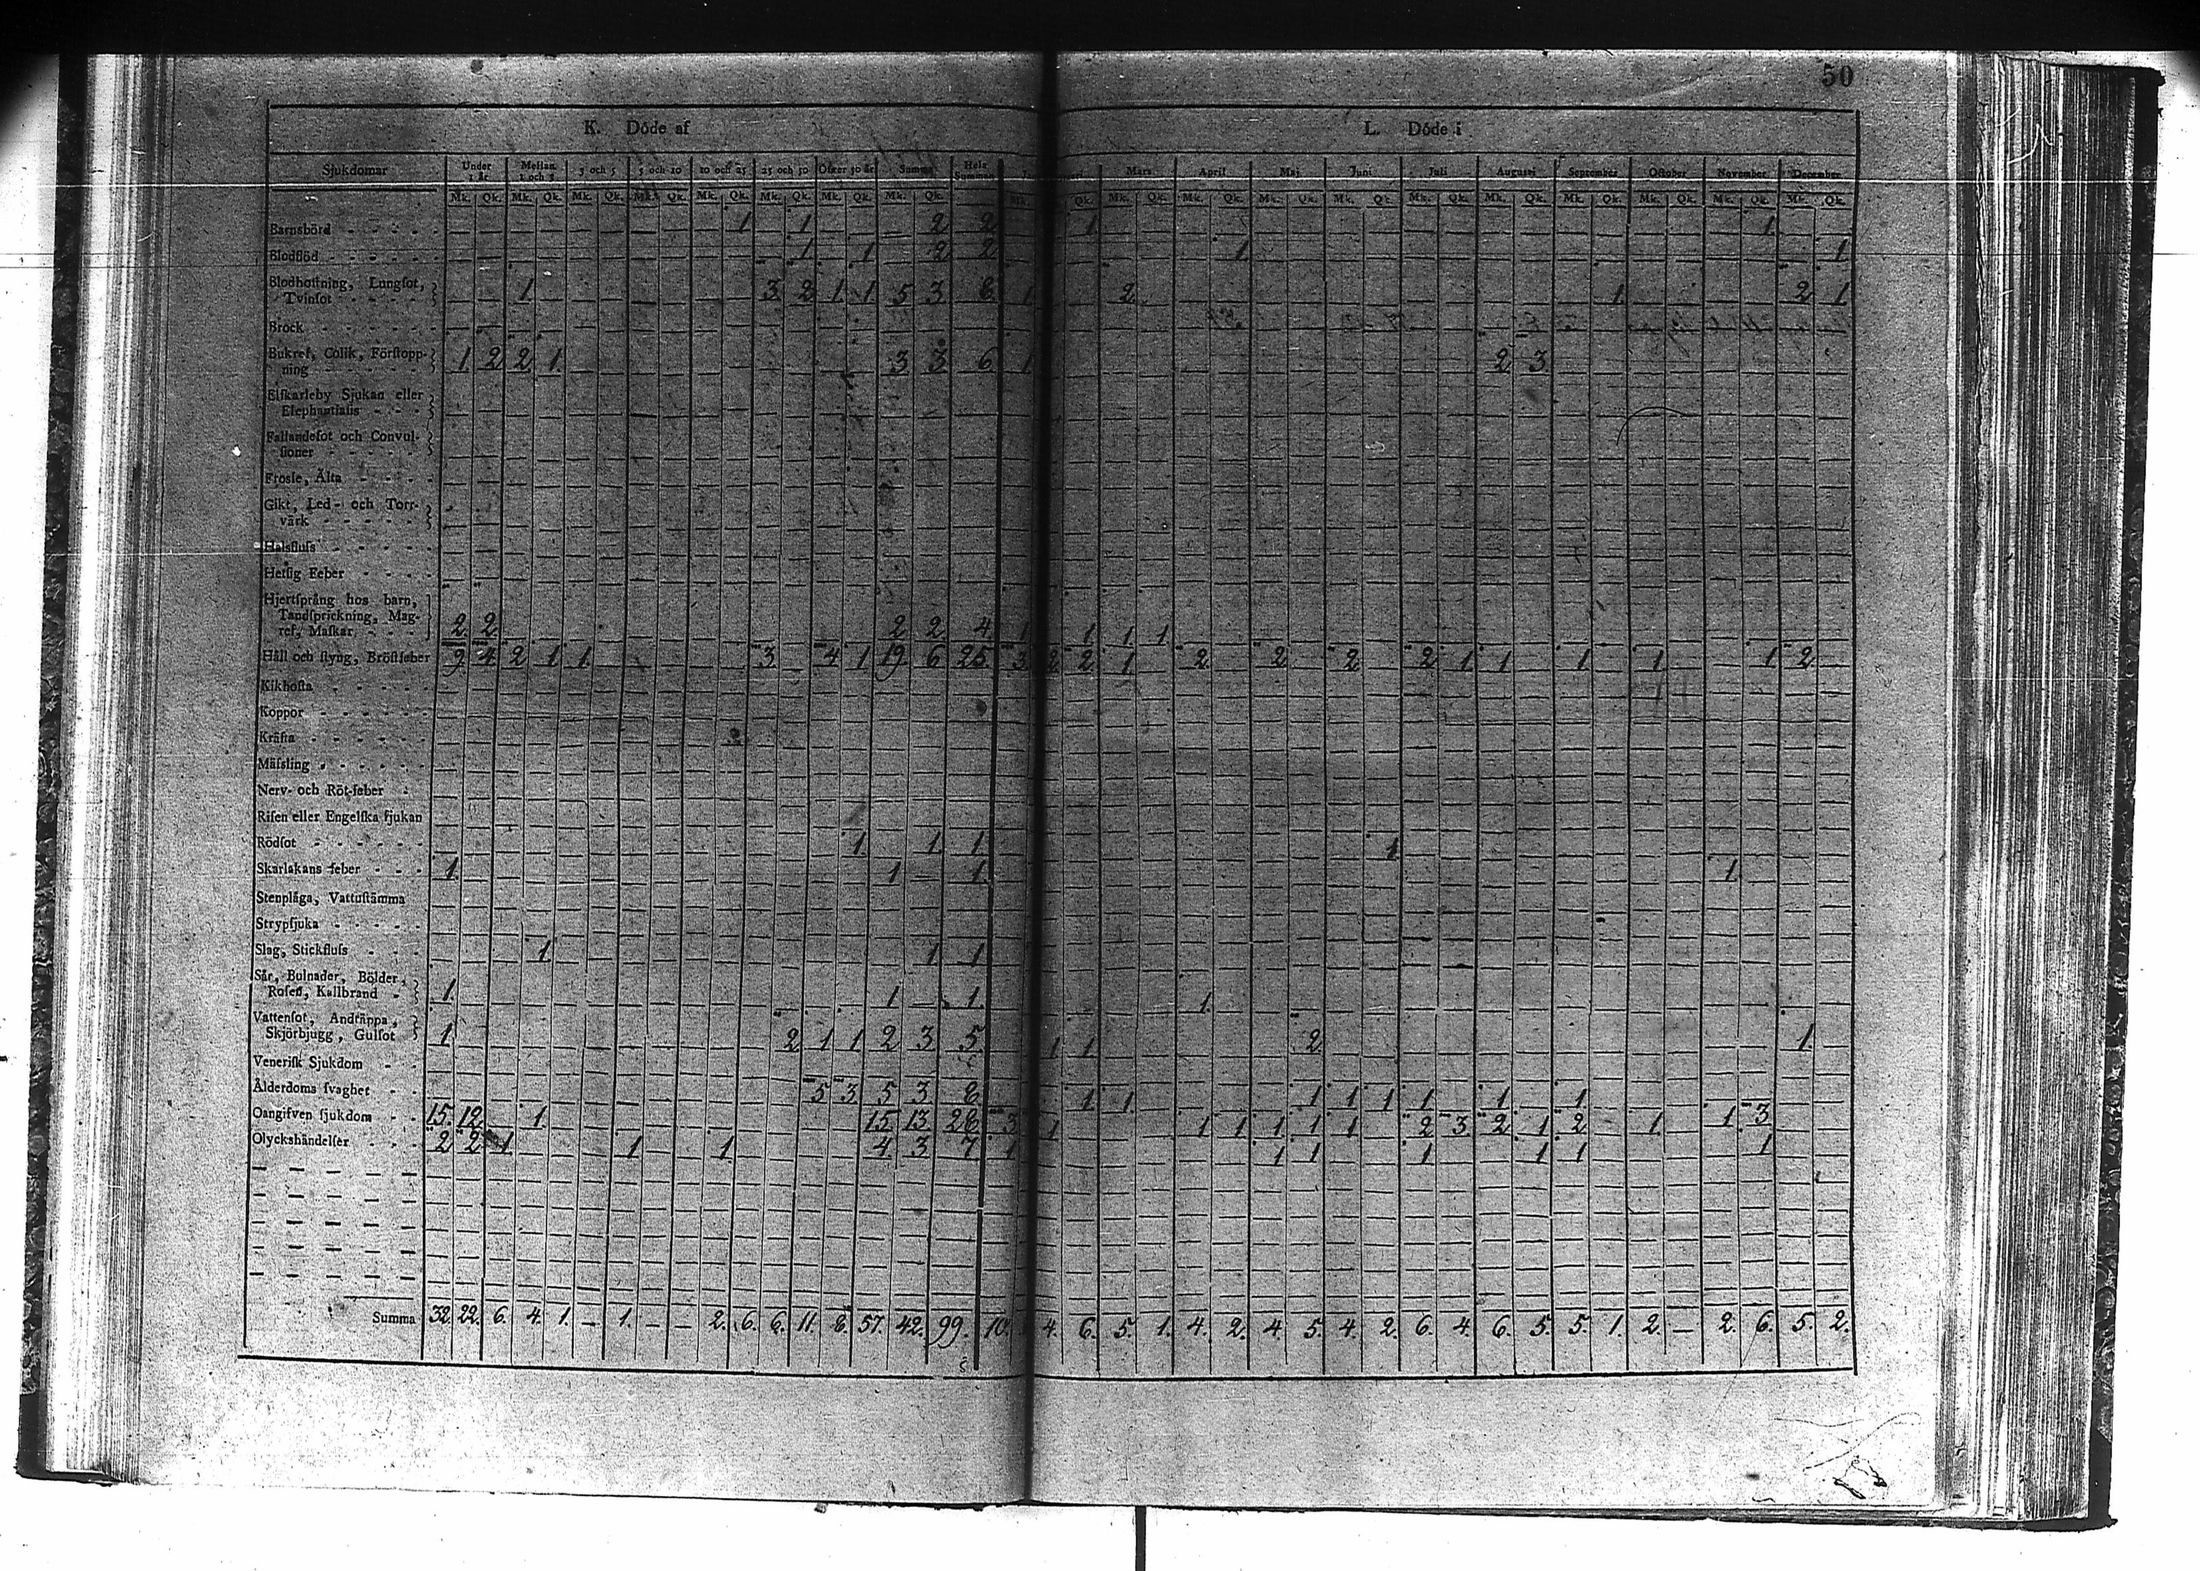 50
K. Döde af L. Döde i
Sjukdomar Under 1 år. Mellan 1 och 3 3 och 5 5 och 10 10 och 25 25 och 50 Öfver 50 år Summa Hela Summan Mars April Maj Juni Juli Augusti September Oktober November December
Mk. Qk. Mk. Qk. Mk. Qk. Mk. Qk. Mk. Qk. Mk. Qk. Mk. Qk. Mk. Qk. Mk. Qk. Mk. Qk. Mk. Qk. Mk. Qk. Mk. Qk. Mk. Qk. Mk. Qk. Mk. Qk. Mk. Qk. Mk. Qk. Mk. Qk.
Barnsbörd 1 1 2 2 1 1
Blodflöd 1 1 2 2 1 1
Blodhostning, Lungsot,
Tvinsot 1 3 2 1 1 5 3 8 1 2 1 2 1
Bråck
Bukref, Colik, Förstopp-
ning 1 2 2 1 3 3 6 1 2 3
Elfkarleby Sjukan eller
Elephantiasis
Fallandesot och Convul-
sioner
Frossa, Älta
Gikt, Led- och Torr-
värk
Halsfluss
Hetsig Feber
Hjertsprång hos barn,
Tandsprickning, Mag-
ref, Maskar 2 2 2 2 4 1 1 1 1
Håll och styng, Bröstfeber 9 4 2 1 1 3 4 1 19 6 25 3 2 2 1 2 2 2 2 1 1 1 1 1 2
Kikhosta
Koppor
Kräfta
Mässling
Nerv- och Röt-feber
Risen eller Engelska sjukan
Rödsot 1 1 1 1
Skarlakans feber 1 1 1 1
Stenplåga, Vattustämma
Strypsjuka
Slag, Stickfluss 1 1 1
Sår, Bulnader, Bölder,
Rosen, Kallbrand 1 1 1 1
Vattensot, Andtäppa,
Skjörbjugg, Gulsot 1 2 1 1 2 3 5 1 1 2 1
Venerisk Sjukdom
Ålderdoms svaghet 5 3 5 3 8 1 1 1 1 1 1 1 1
Oangifven sjukdom 15. 12 1 15 13 28 3 1 1 1 1 1 1 2 3 2 1 2 1 1 3
Olyckshändelser 2 2 1 1 1 4 3 7 1 1 1 1 1 1 1
Summa 32. 22. 6. 4. 1. — 1. — — 2. 6. 6. 11. 8. 57. 42. 99. 10. 4. 6. 5. 1. 4. 2. 4. 5. 4. 2. 6. 4. 6. 5. 5. 1. 2. — 2. 6. 5. 2.